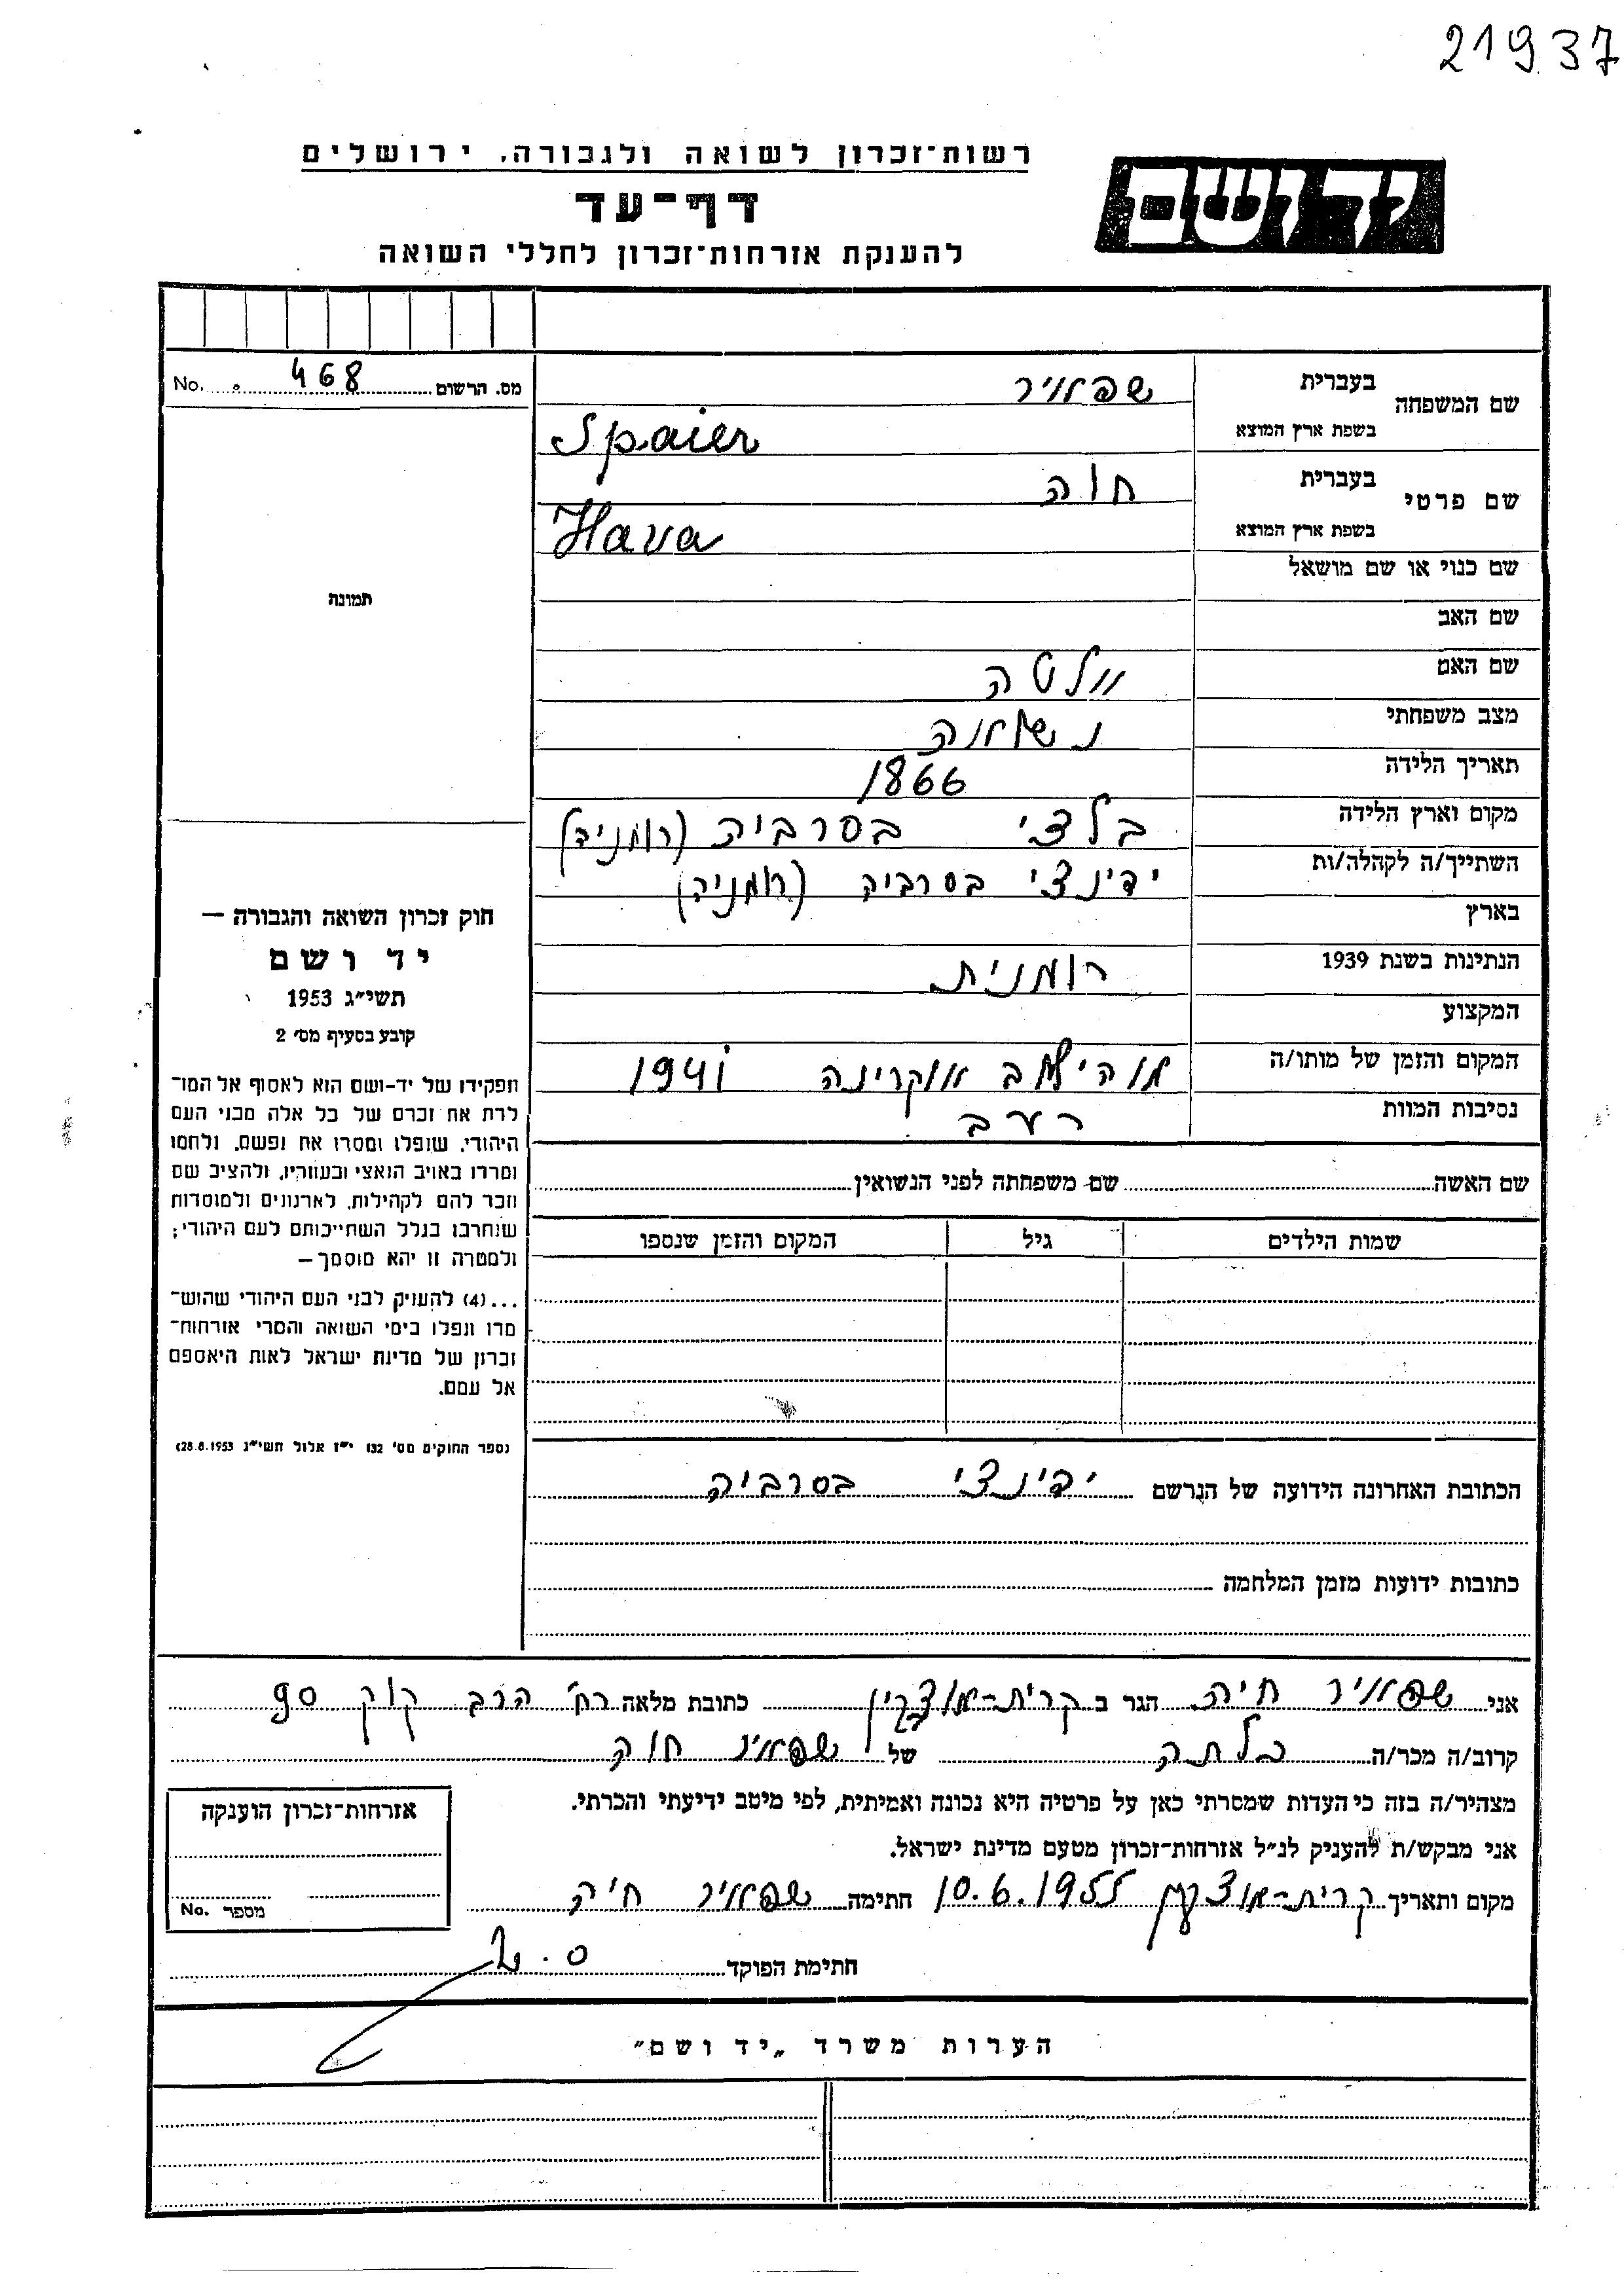 21937
רשות־זכרון לשואה ולגבורה, ירושלים
יד ושם
דף־עד
להענקת אזרחות־זכרון לחללי השואה
No. 468 מס. הרשום
שם המשפחה בעברית שפאיר
בשפת ארץ המוצא Spaier
שם פרטי בעברית חוה
בשפת ארץ המוצא Hava
שם כנוי או שם מושאל
שם האב
שם האם ויטלה
מצב משפחתי נשואה
תאריך הלידה 1866
מקום וארץ הלידה בלצי בסרביה (רומניה)
השתייך/ה לקהלה/ות ידינצי בסרביה (רומניה)
בארץ
הנתינות בשנת 1939 רומנית
המקצוע
המקום והזמן של מותו/ה מוהילב אוקרינה 1941
נסיבות המוות רעב
שם האשה שם משפחתה לפני הנשואין
שמות הילדים גיל המקום והזמן שנספו
תמונה
חוק זכרון השואה והגבורה —
יד ושם
תשי״ג 1953
קובע בסעיף מס׳ 2
תפקידו של יד־ושם הוא לאסוף אל המו־
לדת את זכרם של כל אלה מבני העם
היהודי, שנפלו ומסרו את נפשם, נלחמו
ומרדו באויב הנאצי ובעוזריו, ולהציב שם
וזכר להם לקהילות, לארגונים ולמוסדות
שנחרבו בגלל השתייכותם לעם היהודי;
ולמטרה זו יהא מוסמך —
...(4) להעניק לבני העם היהודי שהוש־
מדו ונפלו בימי השואה והמרי אזרחות־
זכרון של מדינת ישראל לאות היאספם
אל עמם.
נספר החוקים מס׳ 132 י״ז אלול תשי״ג 28.8.1953)
הכתובת האחרונה הידועה של הנרשם ידינצי בסרביה
כתובות ידועות מזמן המלחמה
אני שפאיר חיה הגר ב קרית־מוצקין כתובת מלאה רח׳ הרב קוק 90
קרוב/ה מכר/ה כלתה של שפאיר חוה
מצהיר/ה בזה כי העדות שמסרתי כאן על פרטיה היא נכונה ואמיתית, לפי מיטב ידיעתי והכרתי.
אני מבקש/ת להעניק לנ״ל אזרחות־זכרון מטעם מדינת ישראל.
מקום ותאריך קרית־מוצקין 10.6.1955 חתימה שפאיר חיה
אזרחות־זכרון הוענקה
No. מספר
חתימת הפוקד
הערות משרד „יד ושם״